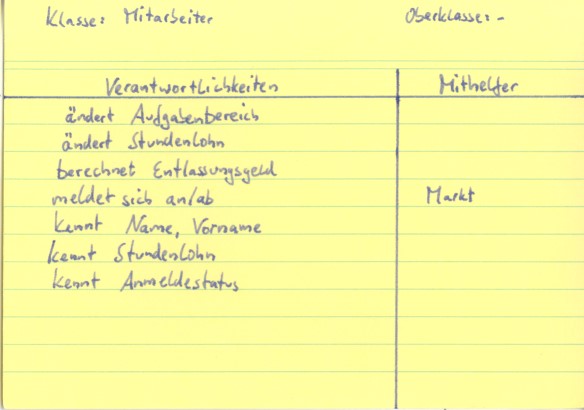 Klasse: Mitarbeiter Oberklasse: -
Verantwortlichkeiten Mithelfer
ändert Aufgabenbereich
ändert Stundenlohn
berechnet Entlassungsgeld
meldet sich an/ab Markt
kennt Name, Vorname
kennt Stundenlohn
kennt Anmeldestatus